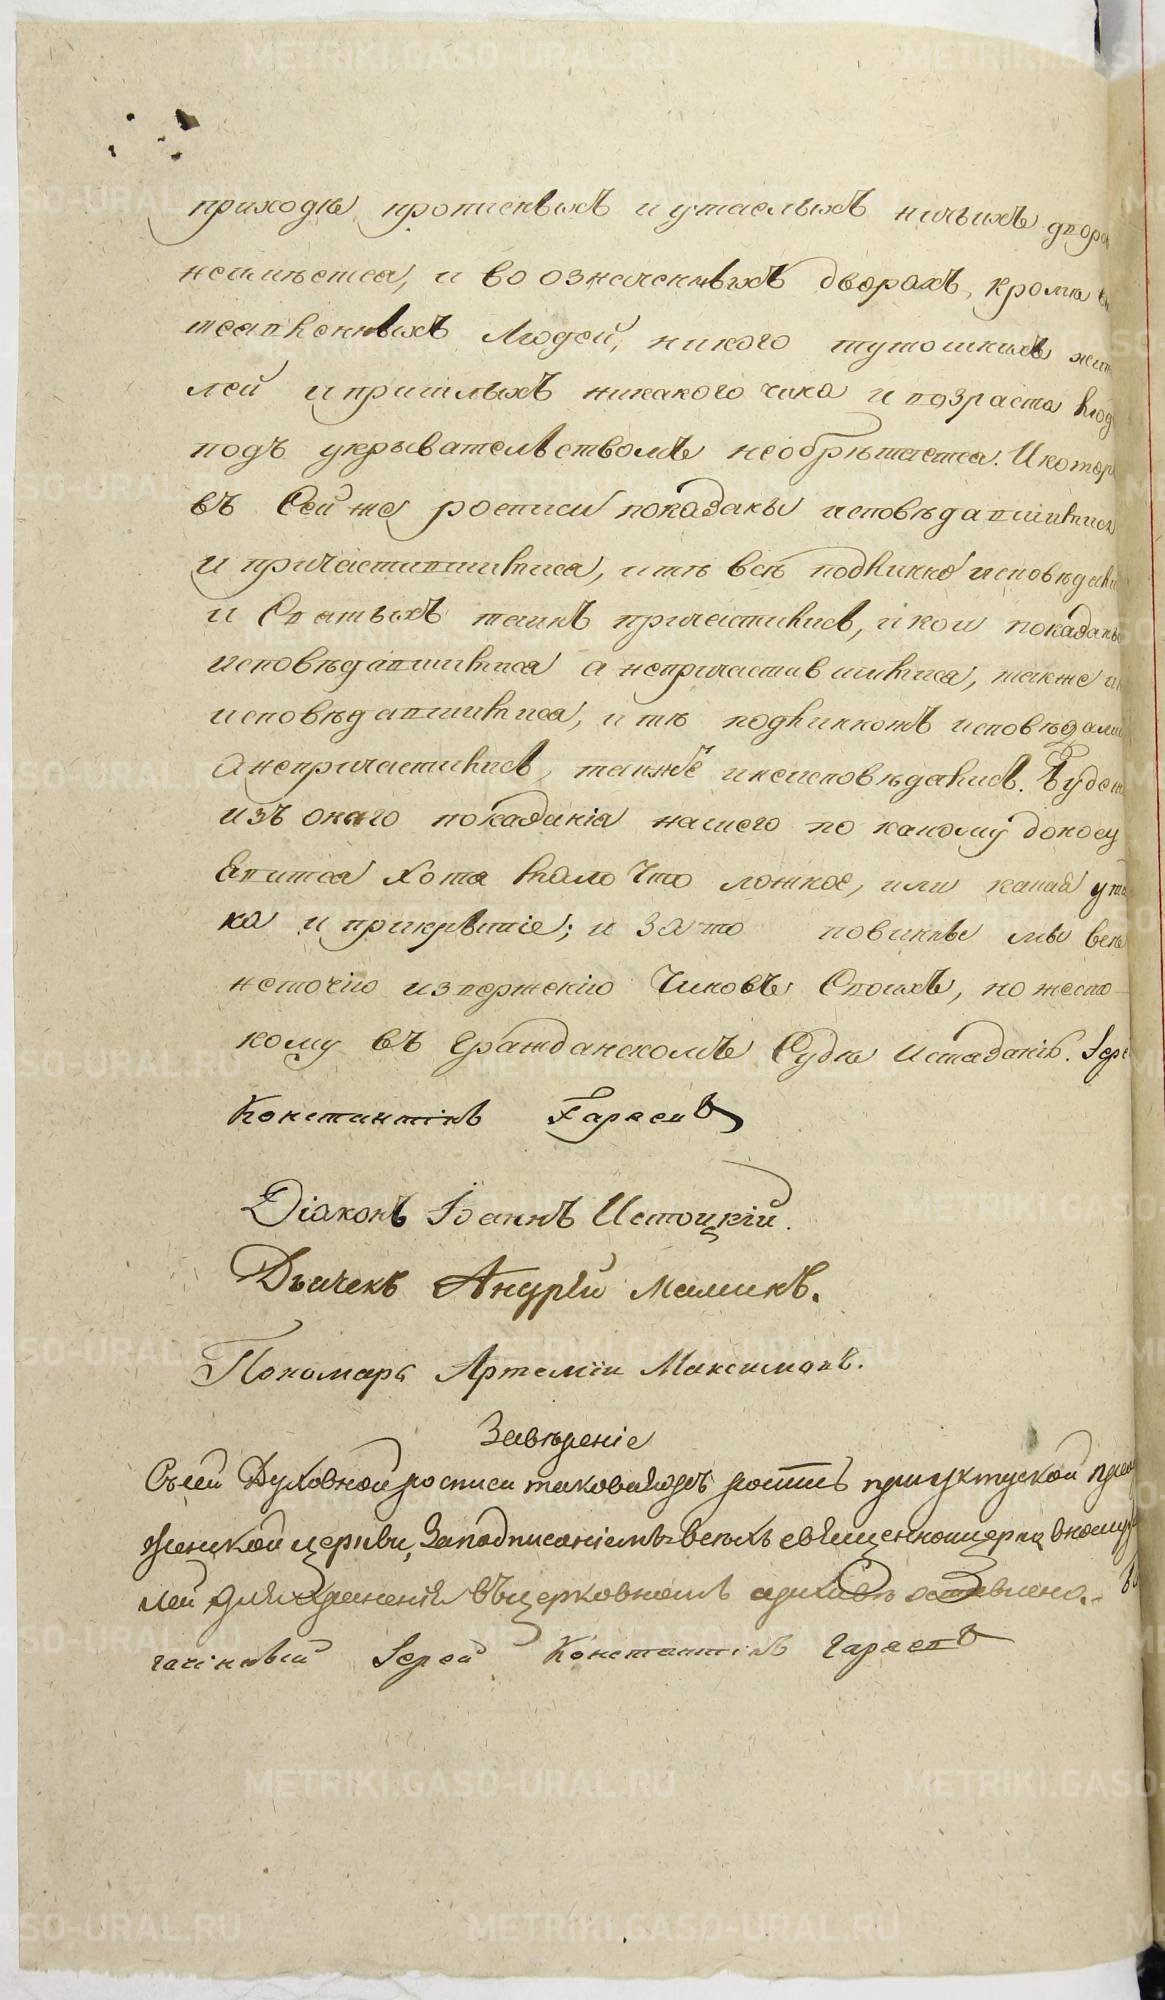 приходѣ прописныхъ и утаелыхъ ничьихъ дворо
неимѣется, и во означенныхъ дворахъ, кромѣ
писанныхъ людей, никого тутошнихъ жит
лей и пришлыхъ никакого чина и возраста люд
подъ укрывательствомъ необрѣтается. И котор
въ Сей же росписи показаны исповѣдавшимися
и причастившимися, и тѣ всѣ подлинно исповѣдали
и Святыхъ таинъ причастились, и кои показаны
исповѣдавшимися а непричастившимися, также и
исповѣдавшимися, и тѣ подлинножъ исповѣдали
а непричастились, также и неисповѣдались. Будеж
изъ онаго показанія нашего по какому доносу
явится хотя мало что ложное, или какая ута
ка и прикрытіе; и за то повинны мы
неточію изверженію чиновъ Своихъ, но жесто
кому въ гражданскомъ Судѣ истязанію. Іере
Константинъ Гаряевъ
Діаконъ Іоаннъ Истоцкій.
Дьячекъ Андрѣй Маминъ.
Пономарь Артемій Максимовъ.
Завѣреніе
Съ сей Духовной росписи таковаяжъ роспись при уктуской прео
женской церкви, за подписаніемъ всѣхъ священноцерковно
лей для храненія въ церковномъ архивѣ оставлена.
гачинный Іерей Константинъ Гаряевъ
METRIKI.GASO-URAL.RU